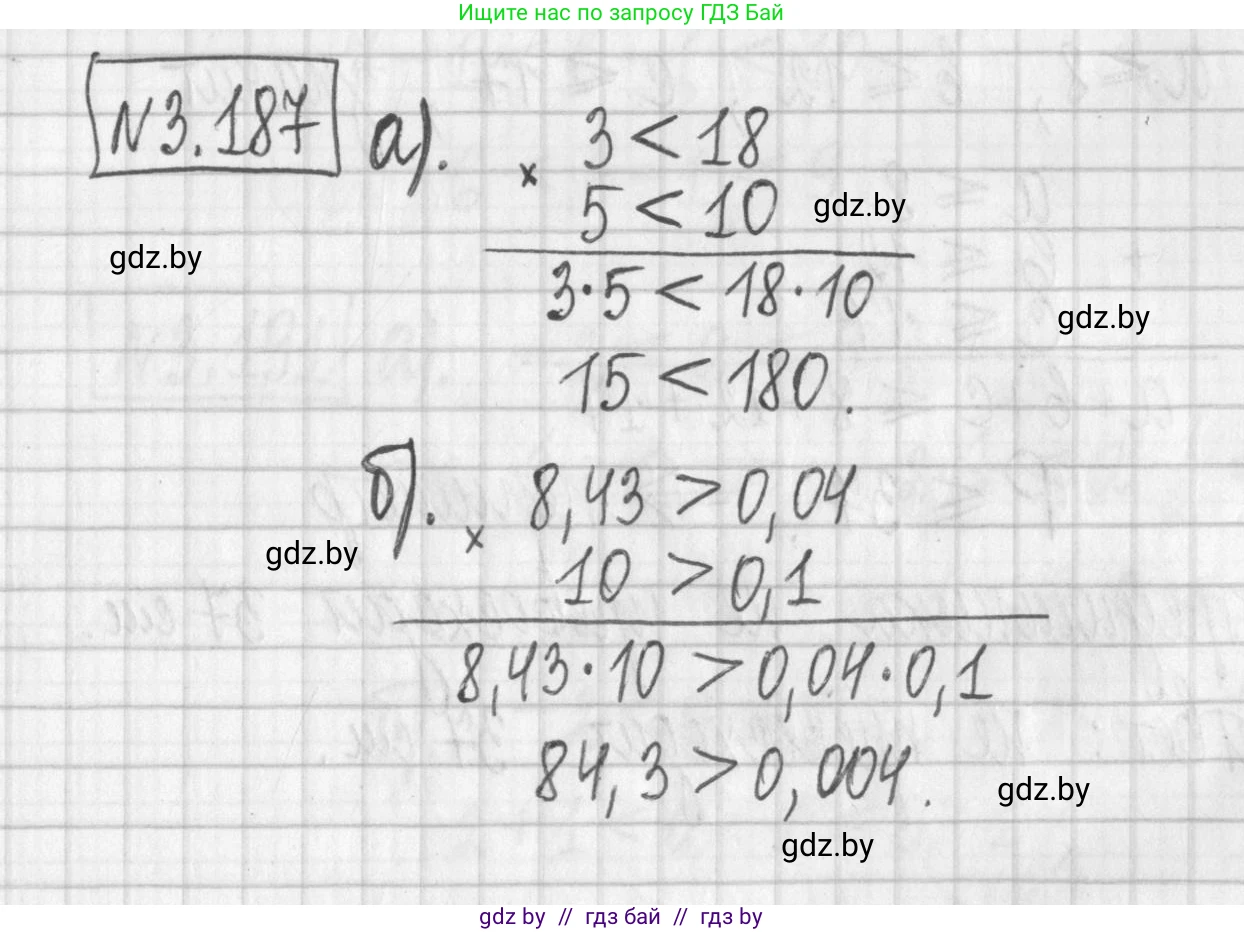 Ищите нас по запросу ГДЗ Бай
№3.187 а).
× 3 < 18
5 < 10
gdz.by
gdz.by
3·5 < 18·10
gdz.by
15 < 180.
б). × 8,43 > 0,04
gdz.by
10 > 0,1
8,43·10 > 0,04·0,1
84,3 > 0,004.
gdz.by
gdz.by
gdz by // гдз бай // гдз by